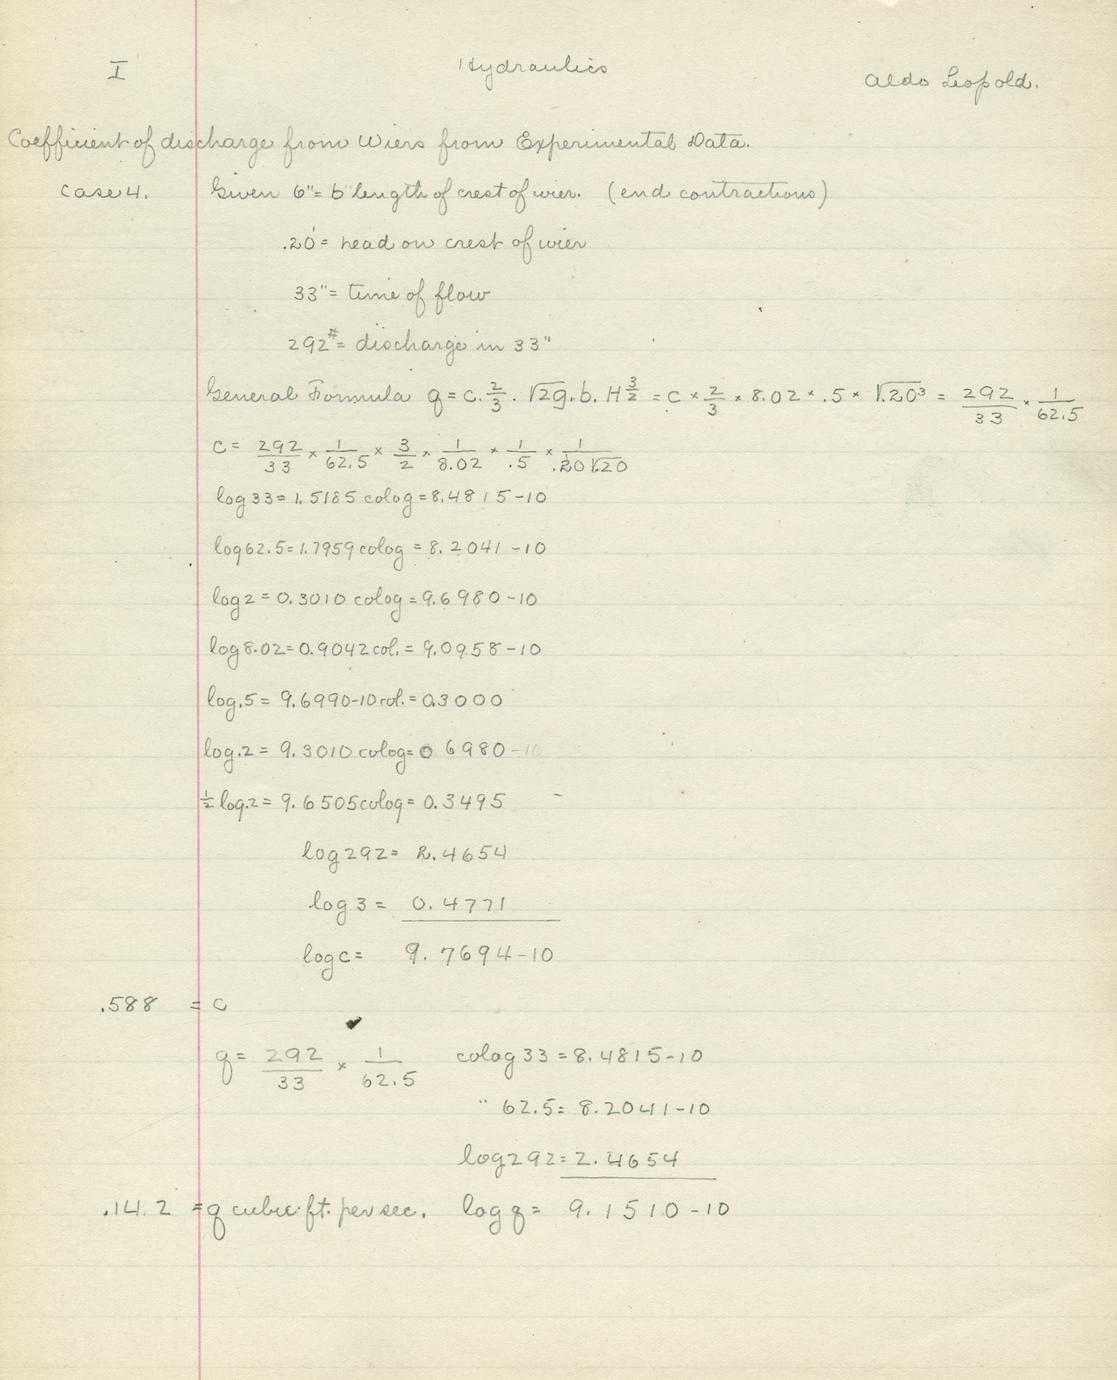 I
Hydraulics
Aldo Leopold.
Coefficient of discharge from Wiers from Experimental Data.
Case 4. Given 6" = b length of crest of wier. (end contractions)
.20' = head on crest of wier
33" = time of flow
292# = discharge in 33"
General Formula q = c. 2/3 . √2g. b. H 3/2 = c × 2/3 × 8.02 × .5 × √.20³ = 292/33 × 1/62.5
c = 292/33 × 1/62.5 × 3/2 × 1/8.02 × 1/.5 × 1/.20√.20
log 33 = 1.5185 colog = 8.4815-10
log 62.5 = 1.7959 colog = 8.2041-10
log 2 = 0.3010 colog = 9.6980-10
log 8.02 = 0.9042 col. = 9.0958-10
log .5 = 9.6990-10 col. = 0.3000
log .2 = 9.3010 colog = 0.6980-10
½ log .2 = 9.6505 colog = 0.3495
log 292 = 2.4654
log 3 = 0.4771
log c = 9.7694-10
.588 = c
q = 292/33 × 1/62.5 colog 33 = 8.4815-10
" 62.5 = 8.2041-10
log 292 = 2.4654
.142 = q cubic ft. per sec. log q = 9.1510-10